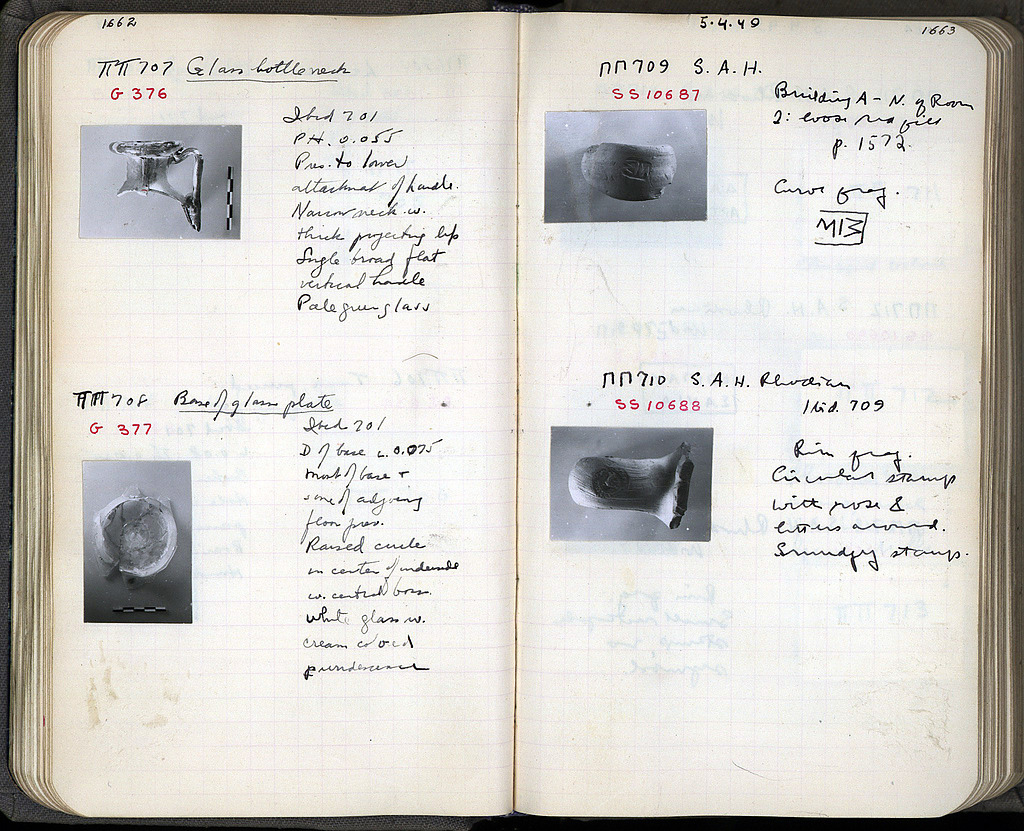 1662
ΠΠ 707 Glass bottle neck
G 376
Ibid 701
P.H. 0.055
Pres. to lower
attachment of handle.
Narrow neck w.
thick projecting lip
Single broad flat
vertical handle
Pale green glass
ΠΠ 708 Base of glass plate
G 377
Ibid 701
D of base c. 0.075
most of base +
some of adjoining
floor pres.
Raised circle
in center of underside
w. central boss.
White glass w.
cream colored
5.4.49
1663
ΠΠ 709 S.A.H.
SS 10687
Building A - N. of Room
2: loose red fill
p. 1572.
Curve frag.
ΠΠ 710 S.A.H. Rhodian
SS 10688
Ibid. 709
Rim frag.
Circular stamp
with rose &
letters around.
Smudgy stamp.